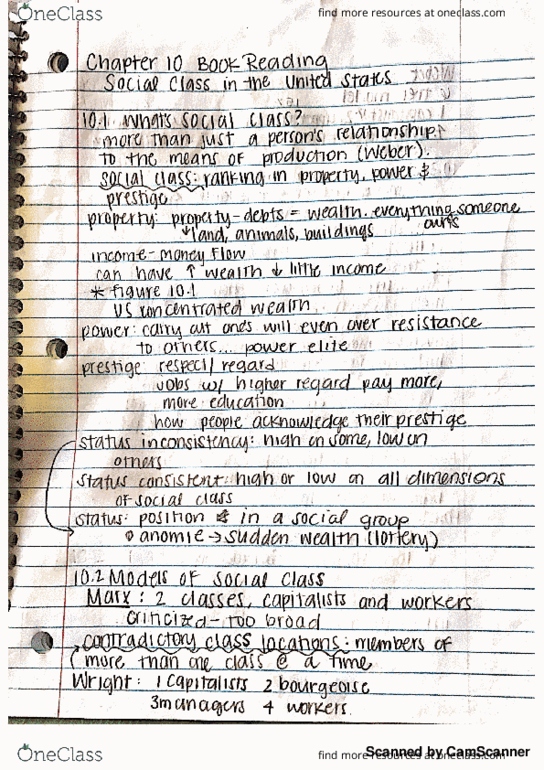 OneClass
find more resources at oneclass.com
Chapter 10 Book Reading
Social Class in the United States
10.1 What's social class?
more than just a person's relationship
to the means of production (Weber).
social class: ranking in property, power &
prestige
property: property-debts = wealth. everything someone owns
↳land, animals, buildings
income-money flow
can have ↑ wealth ↓ little income
* figure 10.1
US concentrated wealth
power: carry out one's will even over resistance
to others... power elite
prestige: respect/regard
Jobs w/ higher regard pay more,
more education
how people acknowledge their prestige
status inconsistency: high on some, low on
others
status consistent: high or low on all dimensions
of social class
status: position in a social group
anomie → sudden wealth (lottery)
10.2 Models of Social Class
Marx: 2 classes, capitalists and workers
criticized - too broad
contradictory class locations: members of
more than one class @ a time
Wright: 1 Capitalists 2 bourgeoise
3 managers 4 workers.
OneClass
find more resources at oneclass.com
Scanned by CamScanner